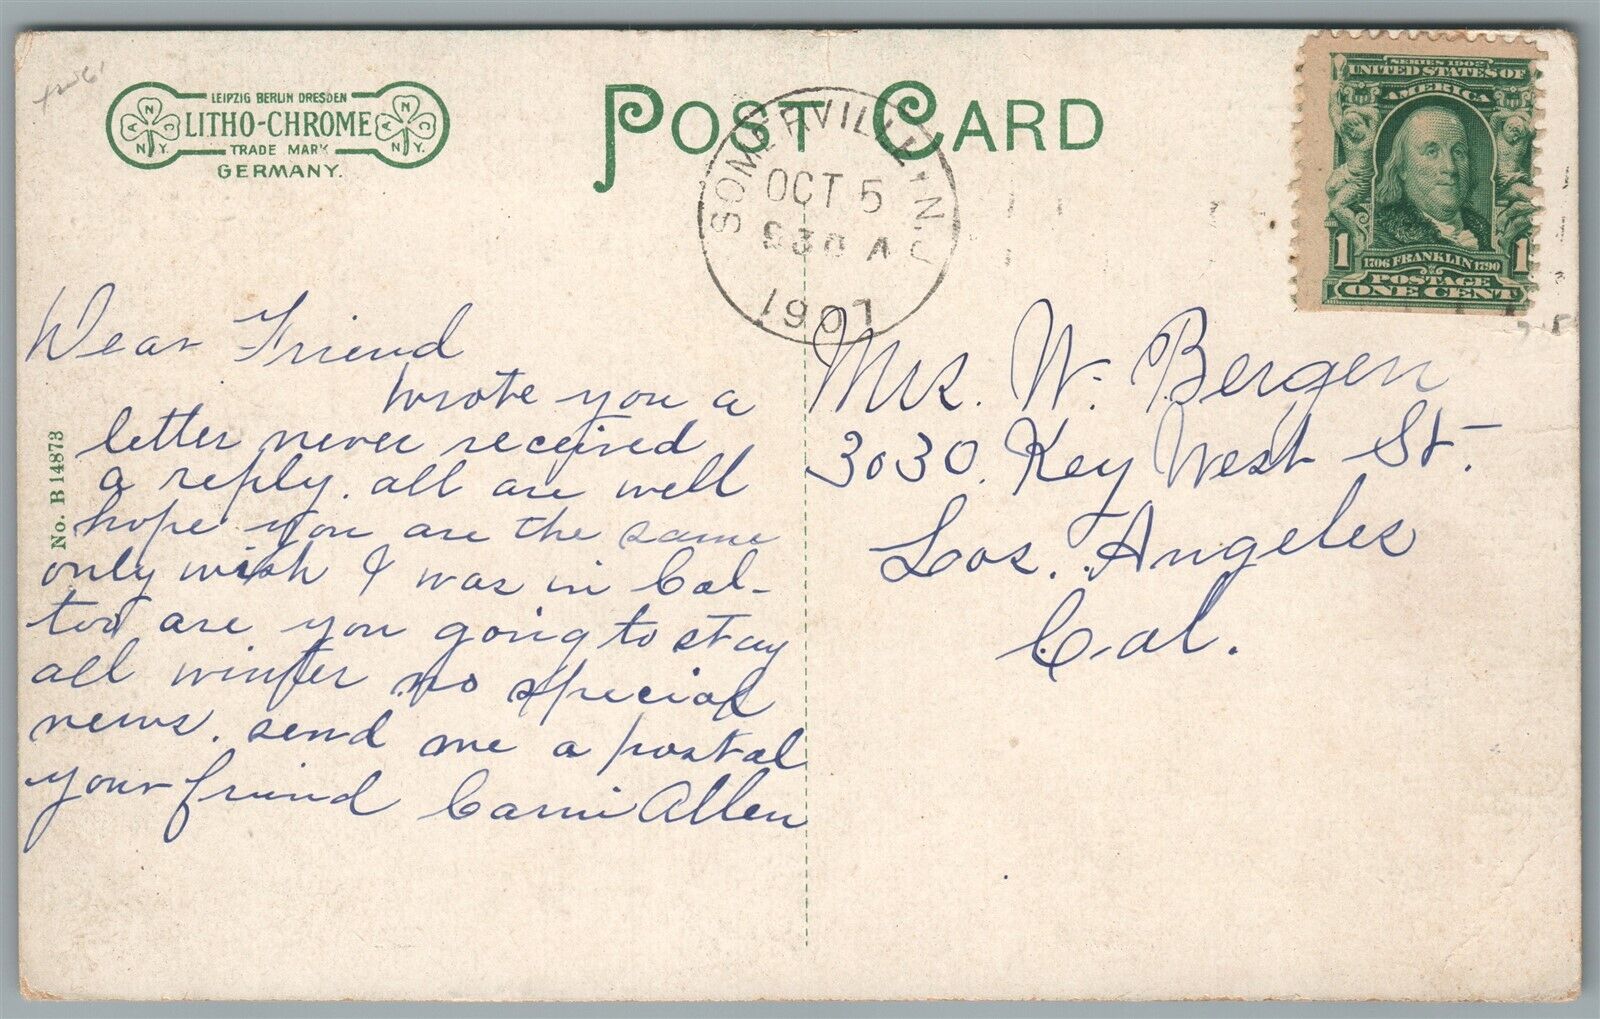 LEIPZIG BERLIN DRESDEN
LITHO-CHROME
TRADE MARK
GERMANY.
POST CARD
SOMERVILLE N.J.
OCT 5
1907
SERIES 1902
UNITED STATES OF
AMERICA
1 1
1706 FRANKLIN 1790
POSTAGE
ONE CENT
No. B 14873
Dear Friend
wrote you a
letter never received
a reply. all are well
hope you are the same
only wish I was in Cal-
too are you going to stay
all winter no special
news. send me a postal
your friend Carrie Allen
Mrs. W. Bergen
3030. Key West St.
Los. Angeles
Cal.